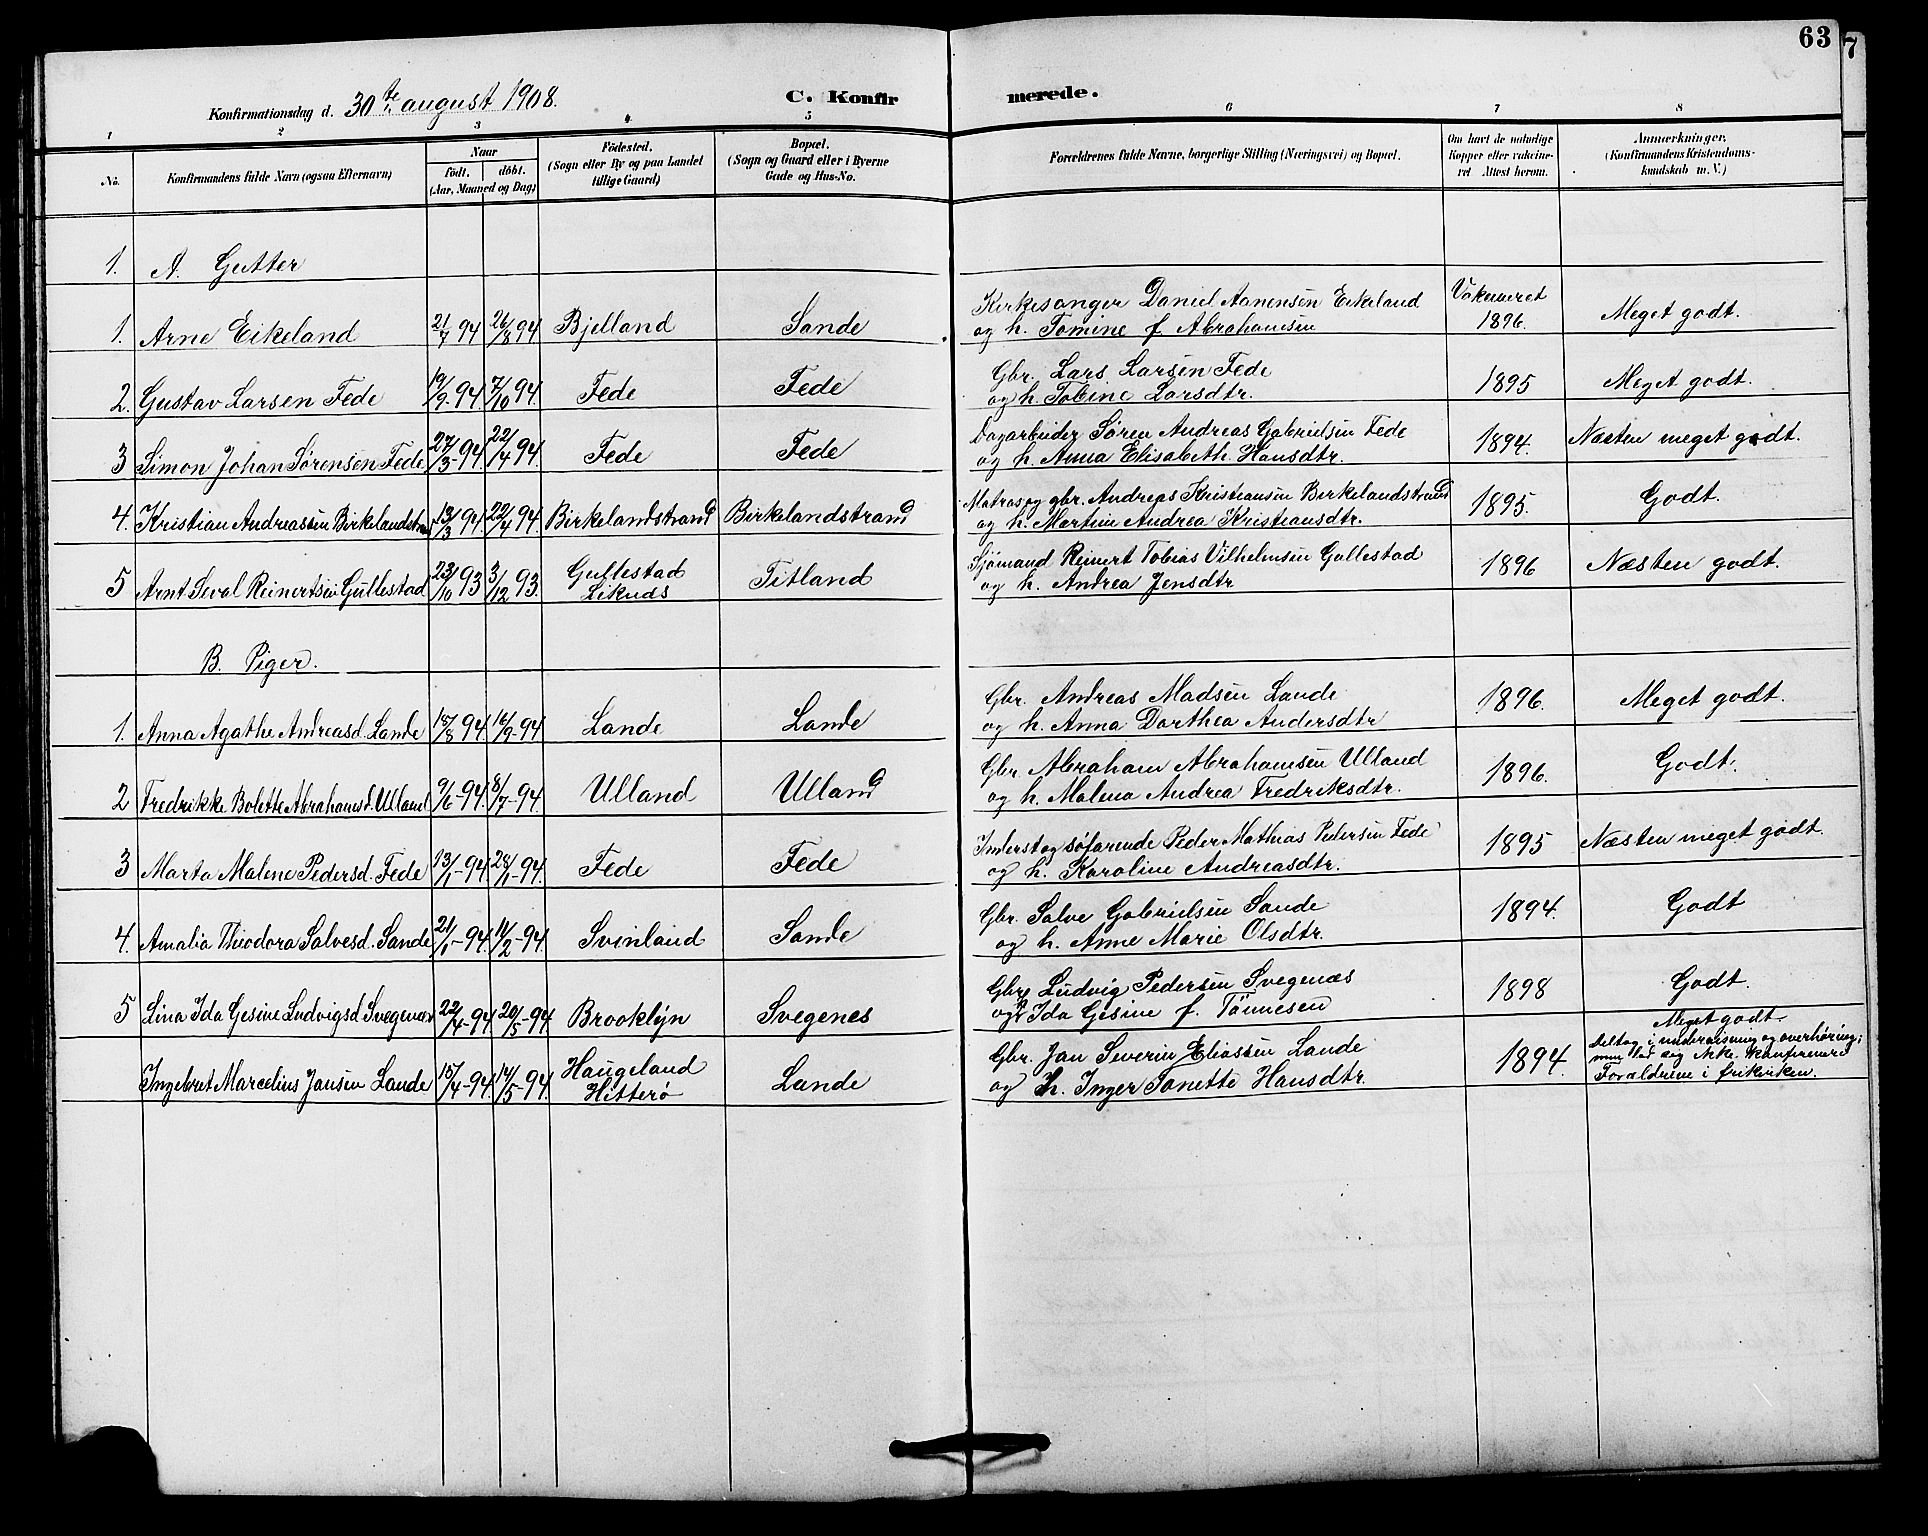 63
7
Konfirmationsdag d. 30te august 1908.
C. Konfirmerede.
1 2 3 4 5 6 7 8
No.
Konfirmandens fulde Navn (ogsaa Efternavn)
Naar
født. døbt.
(Aar, Maaned og Dag)
Fødested.
(Sogn eller By og paa Landet
tillige Gaard)
Bopæl.
(Sogn og Gaard eller i Byerne
Gade og Hus-No.
Forældrenes fulde Navne, borgerlige Stilling (Næringsvei) og Bopæl.
Om havt de naturlige
Kopper eller vakcine-
ret Attest herom.
Anmærkninger.
(Konfirmandens Kristendoms-
kundskab m. V.)
1. A. Gutter
1. Arne Eikeland 21/7 94 26/8 94 Bjelland Sande Kirkesanger Daniel Aanensen Eikeland Vakcineret
og h. Tomine f. Abrahamsen 1896. Meget godt.
2. Gustav Larsen Fede 19/9 94. 7/10 94. Fede Fede Gbr. Lars Larsen Fede 1895 Meget godt.
og h. Tobine Larsdtr.
3 Simon Johan Sørensen Fede 27/3-94 22/4 94. Fede Fede Dagarbeider Søren Andreas Gabrielsen Fede 1894. Næsten meget godt.
og h. Anna Elisabeth Hansdtr.
4. Kristian Andreassen Birkelandstrand 13/3 94 22/4 94. Birkelandstrand Birkelandstrand Matros og gbr. Andreas Kristiansen Birkelandstrand 1895. Godt.
og h. Martine Andrea Kristiansdtr.
5 Arnt Seval Reinertsen Gullestad 23/10 93 3/12 93. Gullestad Titland Sjømand Reinert Tobias Vilhelmsen Gullestad 1896 Næsten godt.
Liknes og h. Andrea Jensdtr
B. Piger.
1. Anna Agathe Andreasd. Lande 18/8 94. 16/9-94 Lande Lande Gbr. Andreas Madsen Lande 1896. Meget godt.
og h. Anna Dorthea Andersdtr
2 Fredrikke Bolette Abrahamsd. Ulland 9/6-94. 8/7-94. Ulland Ulland Gbr. Abraham Abrahamsen Ulland 1896. Godt.
og h. Malena Andrea Fredriksdtr.
3 Marta Malene Pedersd. Fede 13/1-94 28/1-94. Fede Fede Inderst og søfarende Peder Mathias Pedersen Fede 1895 Næsten meget godt.
og h. Karoline Andreasdtr.
4. Amalia Theodora Salvesd. Sande 21/1-94. 11/2-94. Svinland Sande Gbr. Salve Gabrielsen Sande 1894. Godt
og h. Anne Marie Olsdtr.
5 Lina Ida Gesine Ludvigsd Svegenæs 22/4-94. 20/5-94 Brooklyn Svegenes Gbr. Ludvig Pedersen Svegenæs 1898 Godt.
og h Ida Gesine f. Tönnesen
Ingebret Marcelius Jansen Lande 15/4-94. 14/5-94. Haugeland Lande Gbr. Jan Severin Eliassen Lande 1894. Meget godt.
Hitterø og h. Inger Tonette Hansdtr. Deltog i undervisning og overhøring;
men lod sig ikke konfirmere
Forældrene i frikirken.